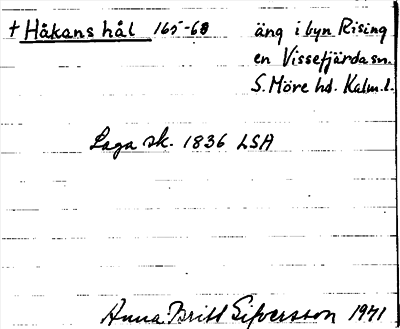 † Håkans hål 165-68 äng i byn Rising
en Vissefjärda sn.
S. Möre hd. Kalm. l.
Laga sk. 1836 LSA
Anna Britt Sifversson 1971